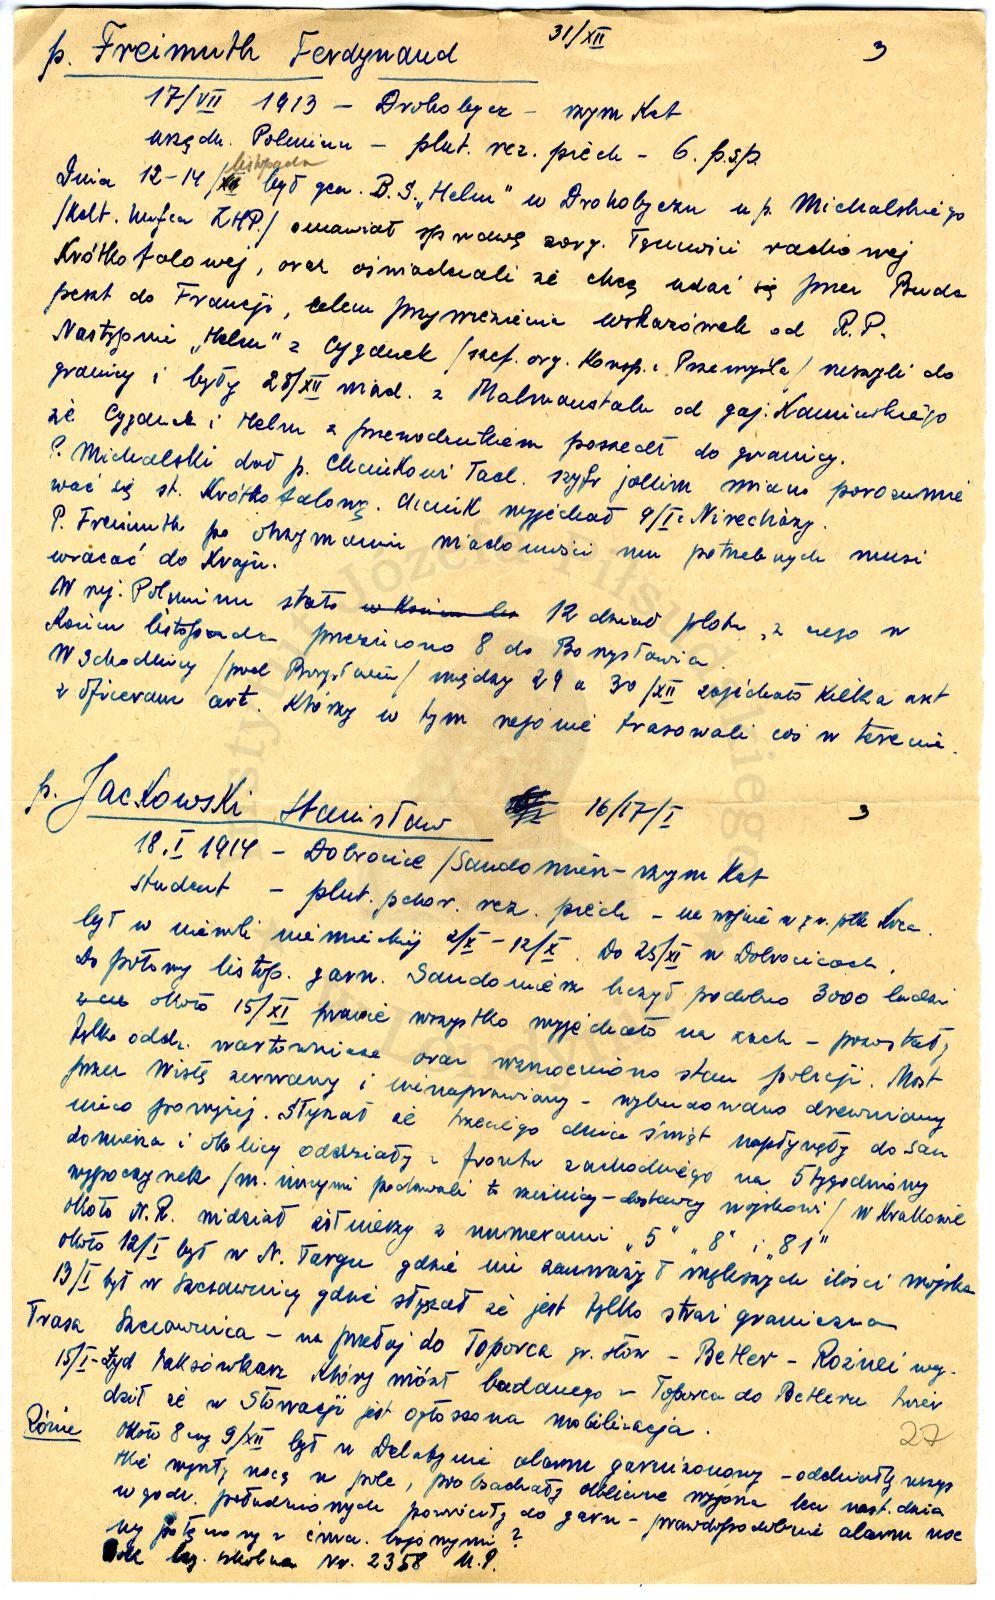 31/XII 3
p. Freimuth Ferdynand
17/VII 1913 – Drohobycz – rzym Kat
urzędn. Polminu – plut. rez. piech – 6. p.s.p.
listopada
Dnia 12-14/XII był gen. B.S. „Helm" w Drohobyczu u p. Michalskiego
/Kdt. Hufca ZHP./ omawiał sprawę zorg. łączności radiowej
Krótkofalowej, oraz oświadczali że chcą udać się przez Buda
peszt do Francji, celem przywiezienia wskazówek od R.P.
Następnie „Helm" z Cygdnek /szef. org. Konsp. z Przemyśla/ ruszyli do
granicy i były 28/XII wiad. z Malmanstalu od gaj. Kamińskiego
że Cygdnek i Helm z przewodnikiem poszedł do granicy.
P. Michalski dał p. Chmikowi Tad. szyfr jakim miano porozumie
wać się st. Krótkofalową. Chmik wyjechał 9/I z Nirechazy.
P. Freimuth po otrzymaniu wiadomości mu potrzebnych musi
wracać do Kraju.
W rej. Polminu stało 12 dział plotn, z czego w
Końcu listopada przeniesiono 8 do Borysławia.
W Schodnicy /pod Borysławiem/ między 29 a 30/XII zajechało kilka aut
z oficerami art. Którzy w tym rejonie trasowali coś w terenie.
p. Jackowski Stanisław 16/17/I 3
18.I 1914 – Dobrocice /Sandomierz – rzym Kat
student – plut. pchor. rez. piech – na wojnie w gr. płk Koca.
był w niewoli niemieckiej 2/X – 12/X. Do 25/XI w Dobrocicach.
Do połowy listop. garn. Sandomierz liczył podobno 3000 ludzi
około 15/XI prawie wszystko wyjechało na zach – pozostały
tylko oddz. wartownicze oraz wzmocniono stan policji. Most
przez Wisłę zerwany i nienaprawiany – wybudowano drewniany
nieco powyżej. Słyszał że trzeciego dnia świąt napłynęły do San
domierza i okolicy oddziały z frontu zachodniego na 5 tygodniowy
wypoczynek /m. innymi podawali to rzeźnicy – dostawcy wojskowi/ W Krakowie
około N.R. widział żołnierzy z numerami „5" „8" i „81"
około 12/I był w N. Targu gdzie nie zauważył większych ilości wojska
13/I był w Szczawnicy gdzie słyszał że jest tylko straż graniczna
Trasa Szczawnica – na przełaj do Toporca gr. słow – Betler – Rożnei wę-
15/I – Żyd taksówkarz który wiózł badanego z Toporca do Betleru twier
dził że w Słowacji jest ogłoszona mobilizacja.
Różne Około 8 czy 9/XII był w Delatynie alarm garnizonowy – oddziały wszys 27
tkie wyszły nocą w pole, prowadziły okoliczne wzgórza lecz nast. dnia
w godz. południowych powróciły do garn – prawdopodobnie alarm noc
ny połączony z ćwicz. bojowymi?
leg. szkolna Nr. 2358 U.P.